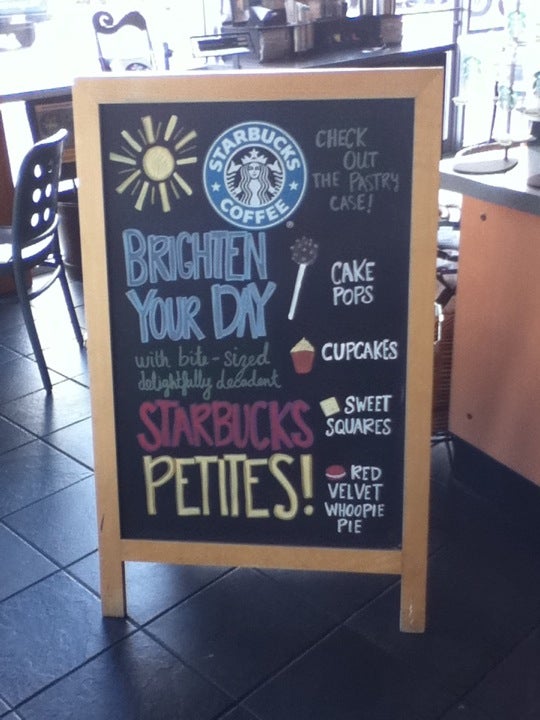 STARBUCKS
COFFEE
®
CHECK
OUT
THE PASTRY
CASE!
BRIGHTEN
YOUR DAY
with bite-sized
delightfully decadent
STARBUCKS
PETITES!
CAKE
POPS
CUPCAKES
SWEET
SQUARES
RED
VELVET
WHOOPIE
PIE